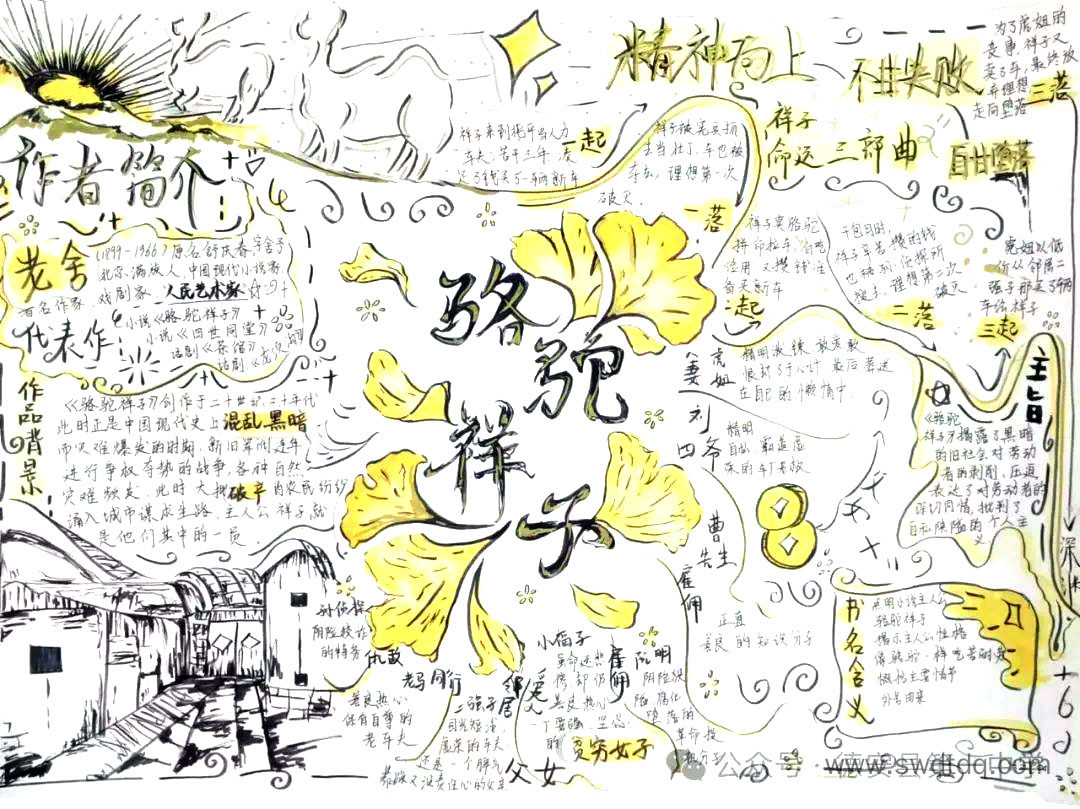 精神向上 不甘失败
为了虎妞的
丧事,祥子又
卖了车,最终放
弃理想
走向堕落
三落
祥子
命运 三部曲
自甘堕落
祥子来到北平当人力
车夫,苦干三年,凑
足了钱买了一辆新车
一起
祥子被宪兵抓
去当壮丁,车也被
夺去,理想第一次
破灭.
一落
祥子卖骆驼
拼命拉车
备买新车
二起
干包月时,
祥子辛苦攒的钱
也被孙侦探所
理想第二次
破灭
二落
虎妞以低
价从邻居二
强子那买了辆
车给祥子
三起
作者简介
老舍
(1899-1966)原名舒庆春,字舍予
北京满族人,中国现代小说家
著名作家、戏剧家、人民艺术家
代表作:
小说《骆驼祥子》
小说《四世同堂》
话剧《茶馆》
话剧《龙须沟》
作品背景
《骆驼祥子》创作于二十世纪二十年代
此时正是中国现代史上混乱黑暗
而灾难爆发的时期,新旧军阀连年
进行争权夺势的战争,各种自然
灾难频发,此时大批破产的农民纷纷
涌入城市谋成生路,主人公祥子就
是他们其中的一员
骆驼
祥子
虎妞
妻
最后葬送
在自己的
刘四爷
精明
自私
的车厂老板
曹先生
雇佣
正直
善良的知识分子
主旨
《骆驼
祥子》揭露了黑暗
的旧社会对劳动
者的剥削、压迫
表达了对劳动者的
深切同情,批判了
自私狭隘的个人主
义
书名含义
点明小说主人公
骆驼祥子
揭示主人公性格
像骆驼一样吃苦耐劳
概括主要情节
外号由来
孙侦探
阴险狡诈
的特务
仇敌
老马 同行
善良热心
保有自尊的
老车夫
二强子 邻居
目光短浅,
虚荣的车夫
还是一个脾气
暴躁又没责任心的父亲
父女
小福子
爱人
善良热心
的贫穷女子
阮明
雇佣
阴险
公众号
www.swdtdq.com